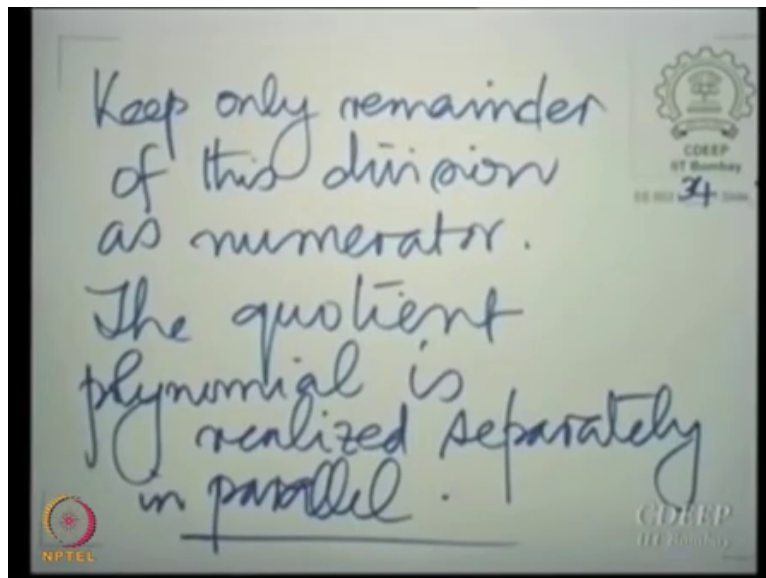 Keep only remainder
of this division
as numerator.
The quotient
plynomial is
realized separately
in parallel.
CDEEP
IIT Bombay
34
NPTEL
CDEEP
IIT Bombay